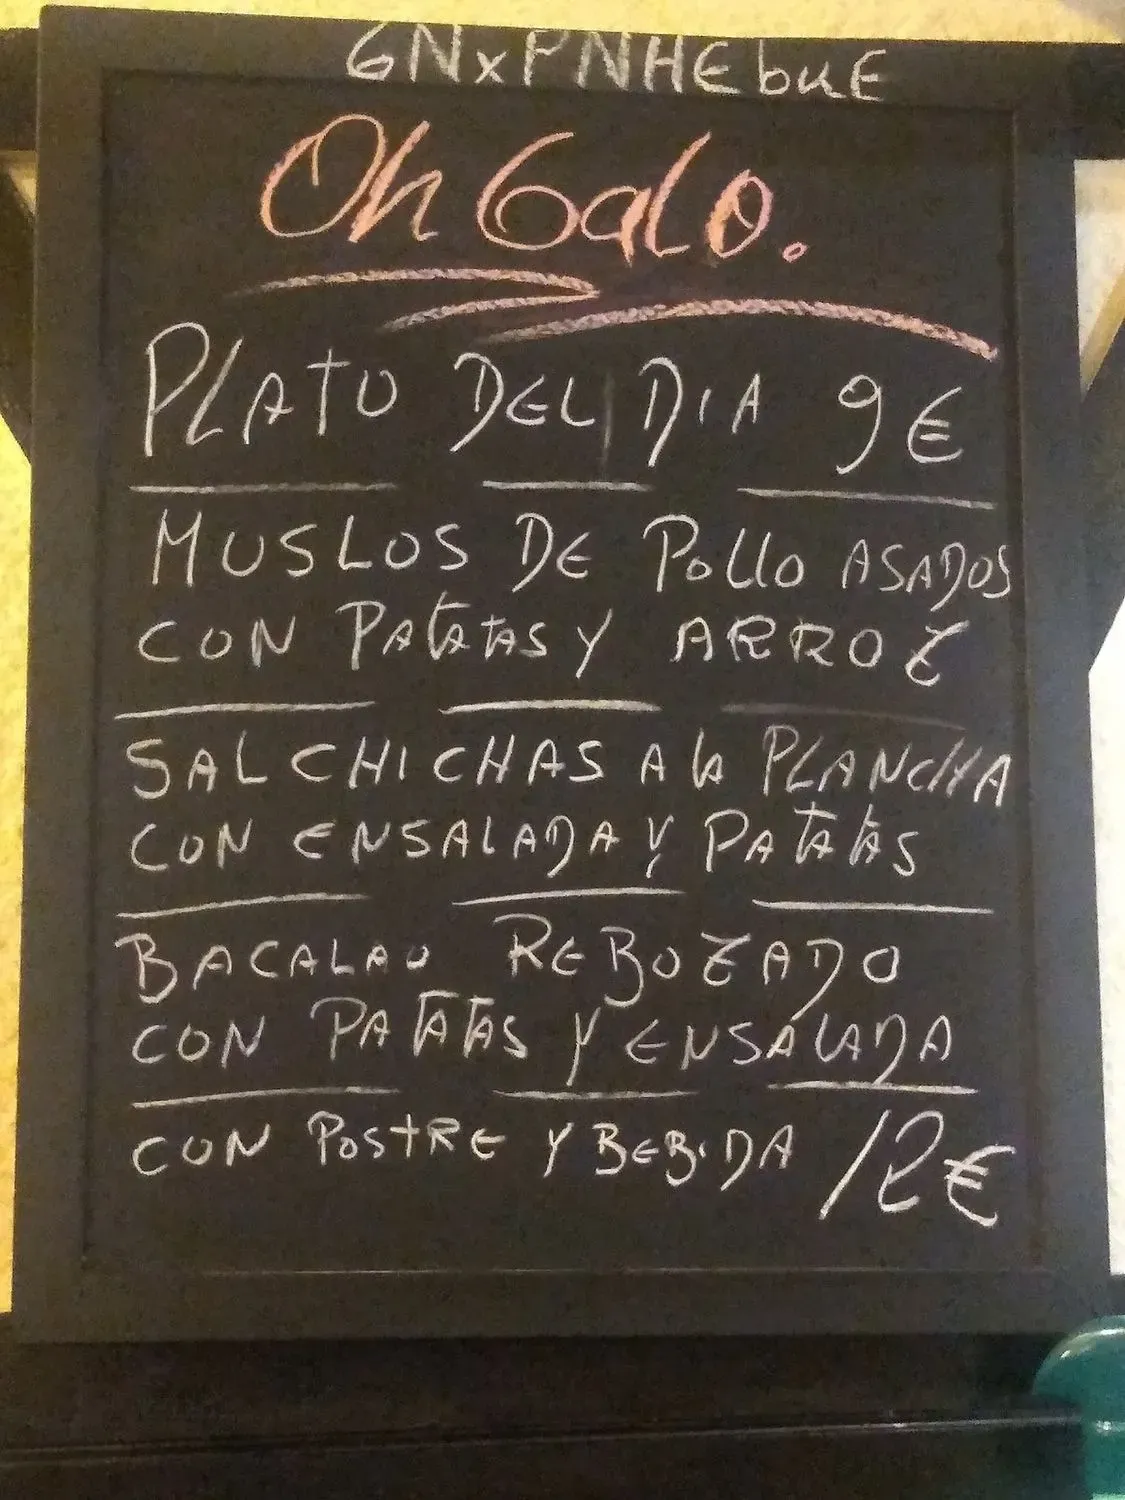 GNxPNHEbuE
Oh Galo.
PLATO DEL DIA 9€
MUSLOS DE Pollo ASADOS
CON PATATAS Y ARROZ
SALCHICHAS A la PLANCHA
CON ENSALADA Y PATATAS
BACALAO REBOZADO
CON PATATAS Y ENSALADA
CON POSTRE Y BEBIDA 12€